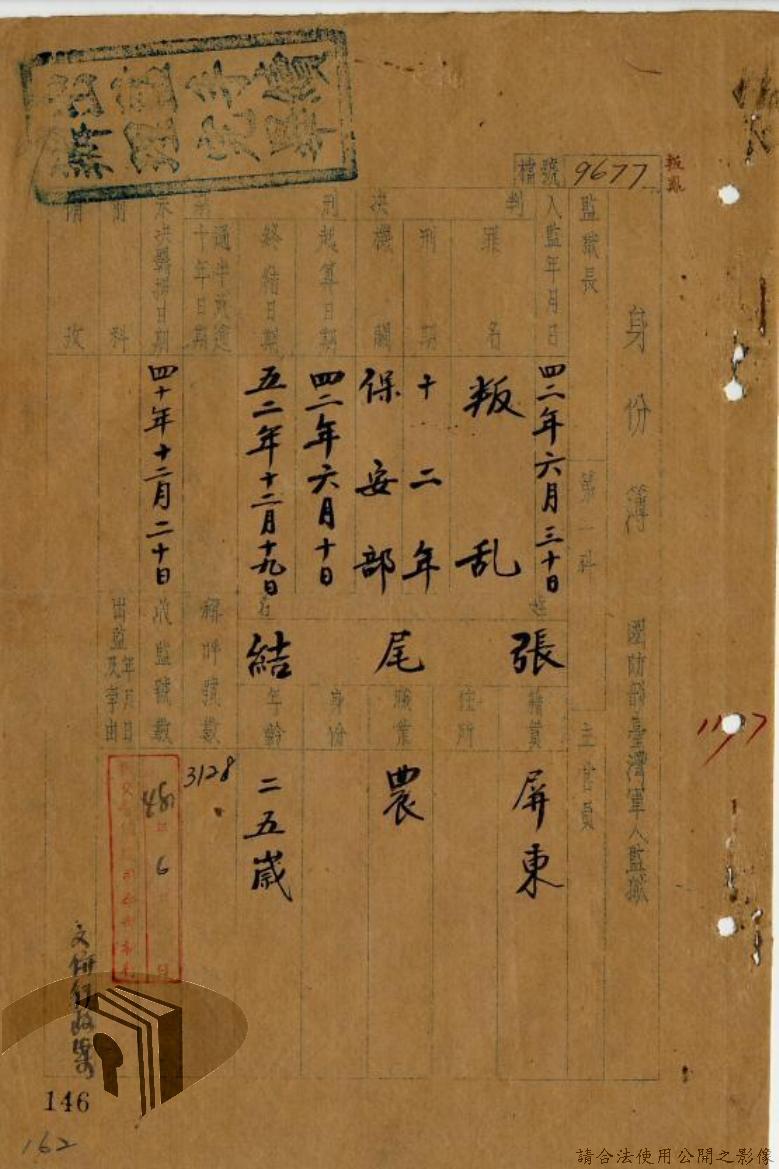 檔號 9677
叛亂
身份簿 國防部臺灣軍人監獄
監獄長
第一科
主管員
入監年月日
四二年六月三十日
姓名
張尾結
籍貫
屏東
判決
罪名
叛乱
住所
刑期
十二年
機關
保安部
職業
農
刑起算日期
四二年六月十日
身份
終結日期
五二年十二月十九日
年齡
二五歲
十年日期
稱呼號數
3128
日期
四十年十二月二十日
收監號數
前科
出監年月日及事由
6
備考
1197
146
162
請合法使用公開之影像